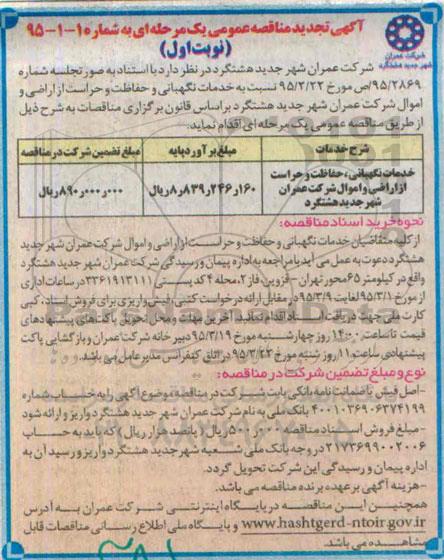 آگهی تجدید مناقصه عمومی یک مرحله ای به شماره ۱-۱-۹۵
(نوبت اول)
شرکت عمران
شهر جدید هشتگرد
شرکت عمران شهر جدید هشتگرد در نظر دارد با استناد به صورتجلسه شماره
۹۵/۲۸۶۹/ص مورخ ۹۵/۲/۲۲ نسبت به خدمات نگهبانی و حفاظت و حراست از اراضی و
اموال شرکت عمران شهر جدید هشتگرد براساس قانون برگزاری مناقصات به شرح ذیل
از طریق مناقصه عمومی یک مرحله ای اقدام نماید:
شرح خدمات مبلغ برآورد پایه مبلغ تضمین شرکت در مناقصه
خدمات نگهبانی، حفاظت و حراست
از اراضی و اموال شرکت عمران
شهر جدید هشتگرد
۸٫۸۳۹٫۲۴۶٫۱۶۰ ریال
۸۹۰٫۰۰۰٫۰۰۰ ریال
نحوه خرید اسناد مناقصه:
از کلیه متقاضیان خدمات نگهبانی و حفاظت و حراست از اراضی و اموال شرکت عمران شهر جدید
هشتگرد دعوت به عمل می آید با مراجعه به اداره پیمان و رسیدگی شرکت عمران شهر جدید هشتگرد
واقع در کیلومتر ۶۵ محور تهران - قزوین، فاز ۲، محله ۴ کد پستی ۳۳۶۱۹۱۳۱۱۱ در ساعات اداری
از مورخ ۹۵/۳/۱ لغایت ۹۵/۳/۹ در مقابل ارائه درخواست کتبی، فیش واریزی برای فروش اسناد، کپی
کارت ملی جهت دریافت اسناد اقدام نمایند. آخرین مهلت و محل تحویل پاکت های پیشنهادهای
قیمت تا ساعت ۱۴:۰۰ روز چهارشنبه مورخ ۹۵/۳/۱۹ دبیرخانه شرکت عمران و بازگشایی پاکت
پیشنهادی ساعت ۱۱ روز شنبه مورخ ۹۵/۳/۲۲ در اتاق کنفرانس مدیرعامل می باشد.
نوع و مبلغ تضمین شرکت در مناقصه:
-اصل فیش یا ضمانت نامه بانکی بابت شرکت در مناقصه موضوع آگهی را به حساب شماره
۴۰۰۱۰۳۶۹۰۶۳۷۴۱۹۹ بانک ملی به نام شرکت عمران شهر جدید هشتگرد واریز و ارائه شود
-مبلغ فروش اسناد مناقصه ۵۰۰٫۰۰۰ ریال (پانصد هزار ریال) که باید به حساب
۲۱۷۳۶۹۹۰۰۲۰۰۶ در وجه بانک ملی شعبه شهر جدید هشتگرد واریز و رسید آن به
اداره پیمان و رسیدگی این شرکت تحویل گردد.
-هزینه آگهی بر عهده برنده مناقصه می باشد.
همچنین این مناقصه در پایگاه اینترنتی شرکت عمران به آدرس
www.hashtgerd-ntoir.gov.ir و پایگاه ملی اطلاع رسانی مناقصات قابل
مشاهده می باشد.